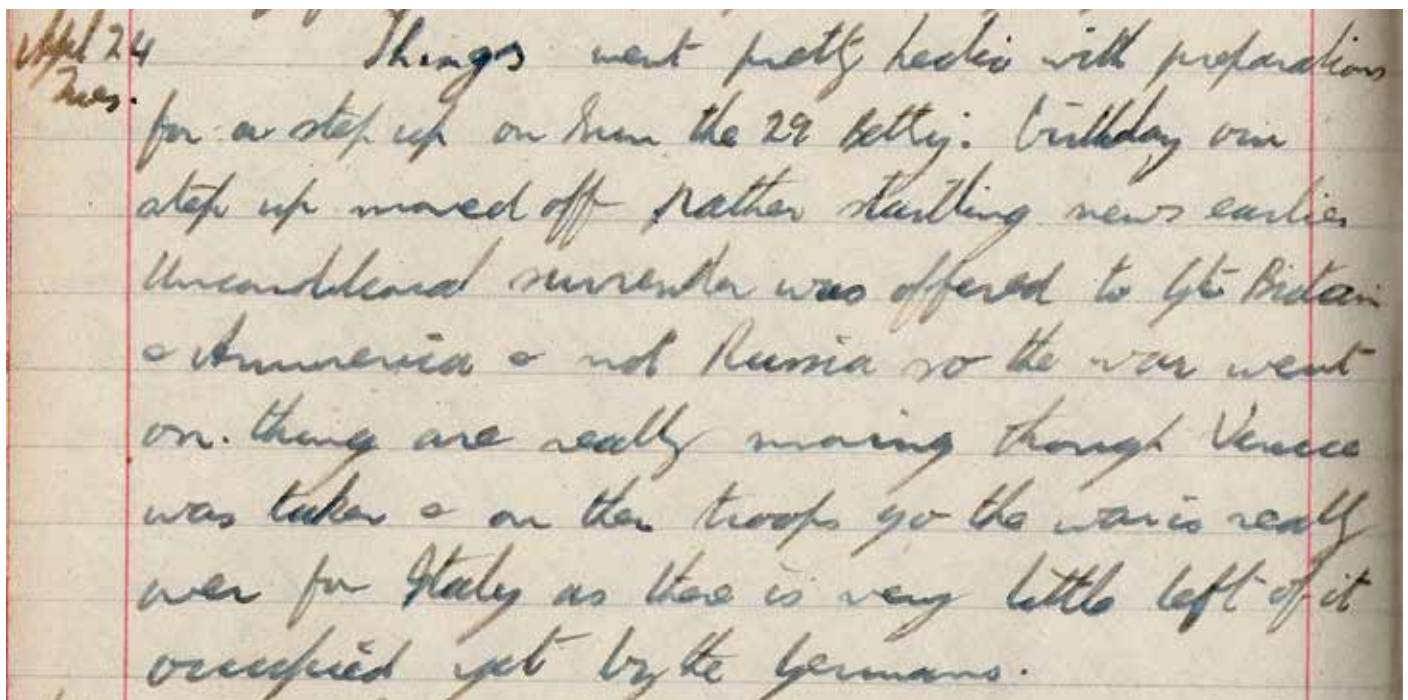 April 24 Things went pretty hectic with preparations
Tues.
for a step up on Sun the 29 Betty. birthday our
step up moved off Rather startling news earlier
Unconditional surrender was offered to Gt Britain
& Ammerica & not Russia so the war went
on. thing are really moving though Venice
was taken & on the troops go the war is really
over for Italy as there is very little left of it
occupied yet by the Germans.